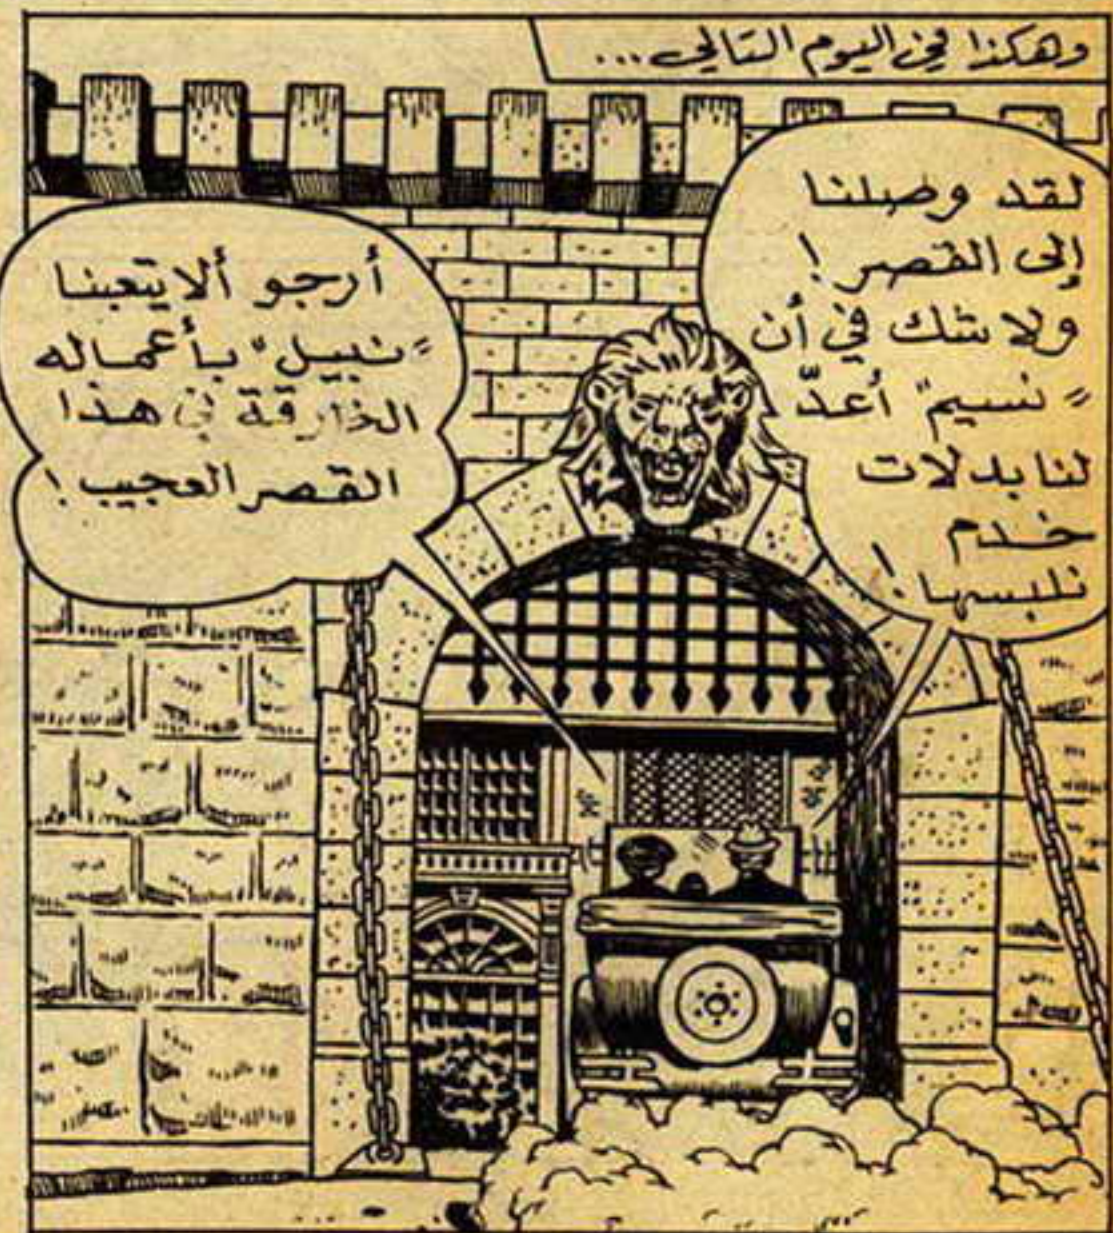 وهكذا في اليوم التالي...
لقد وصلنا
إلى القصر!
ولا شك في أن
"نسيم" أعدّ
لنا بدلات
خدم
نلبسها!
أرجو ألا يتعبنا
"نبيل" بأعماله
الخارقة في هذا
القصر العجيب!